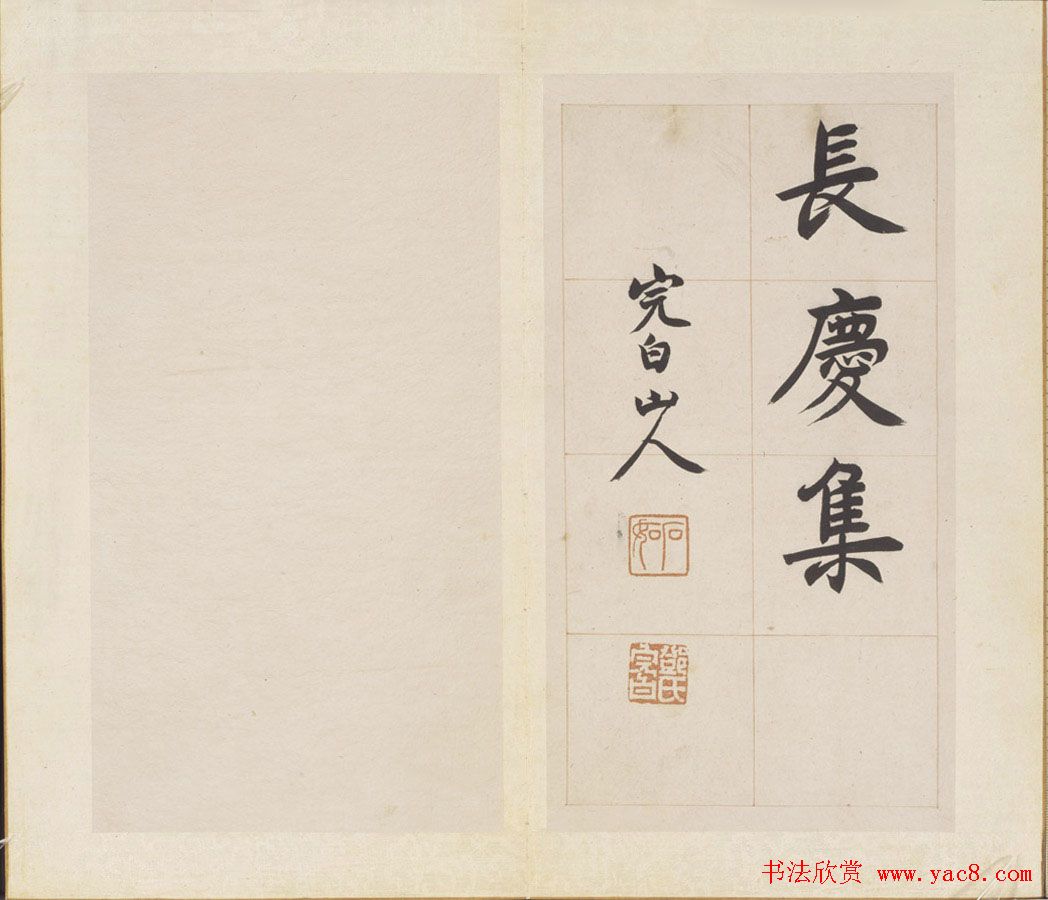 長慶集
完白山人
石如
鄧氏完白
书法欣赏 www.yac8.com